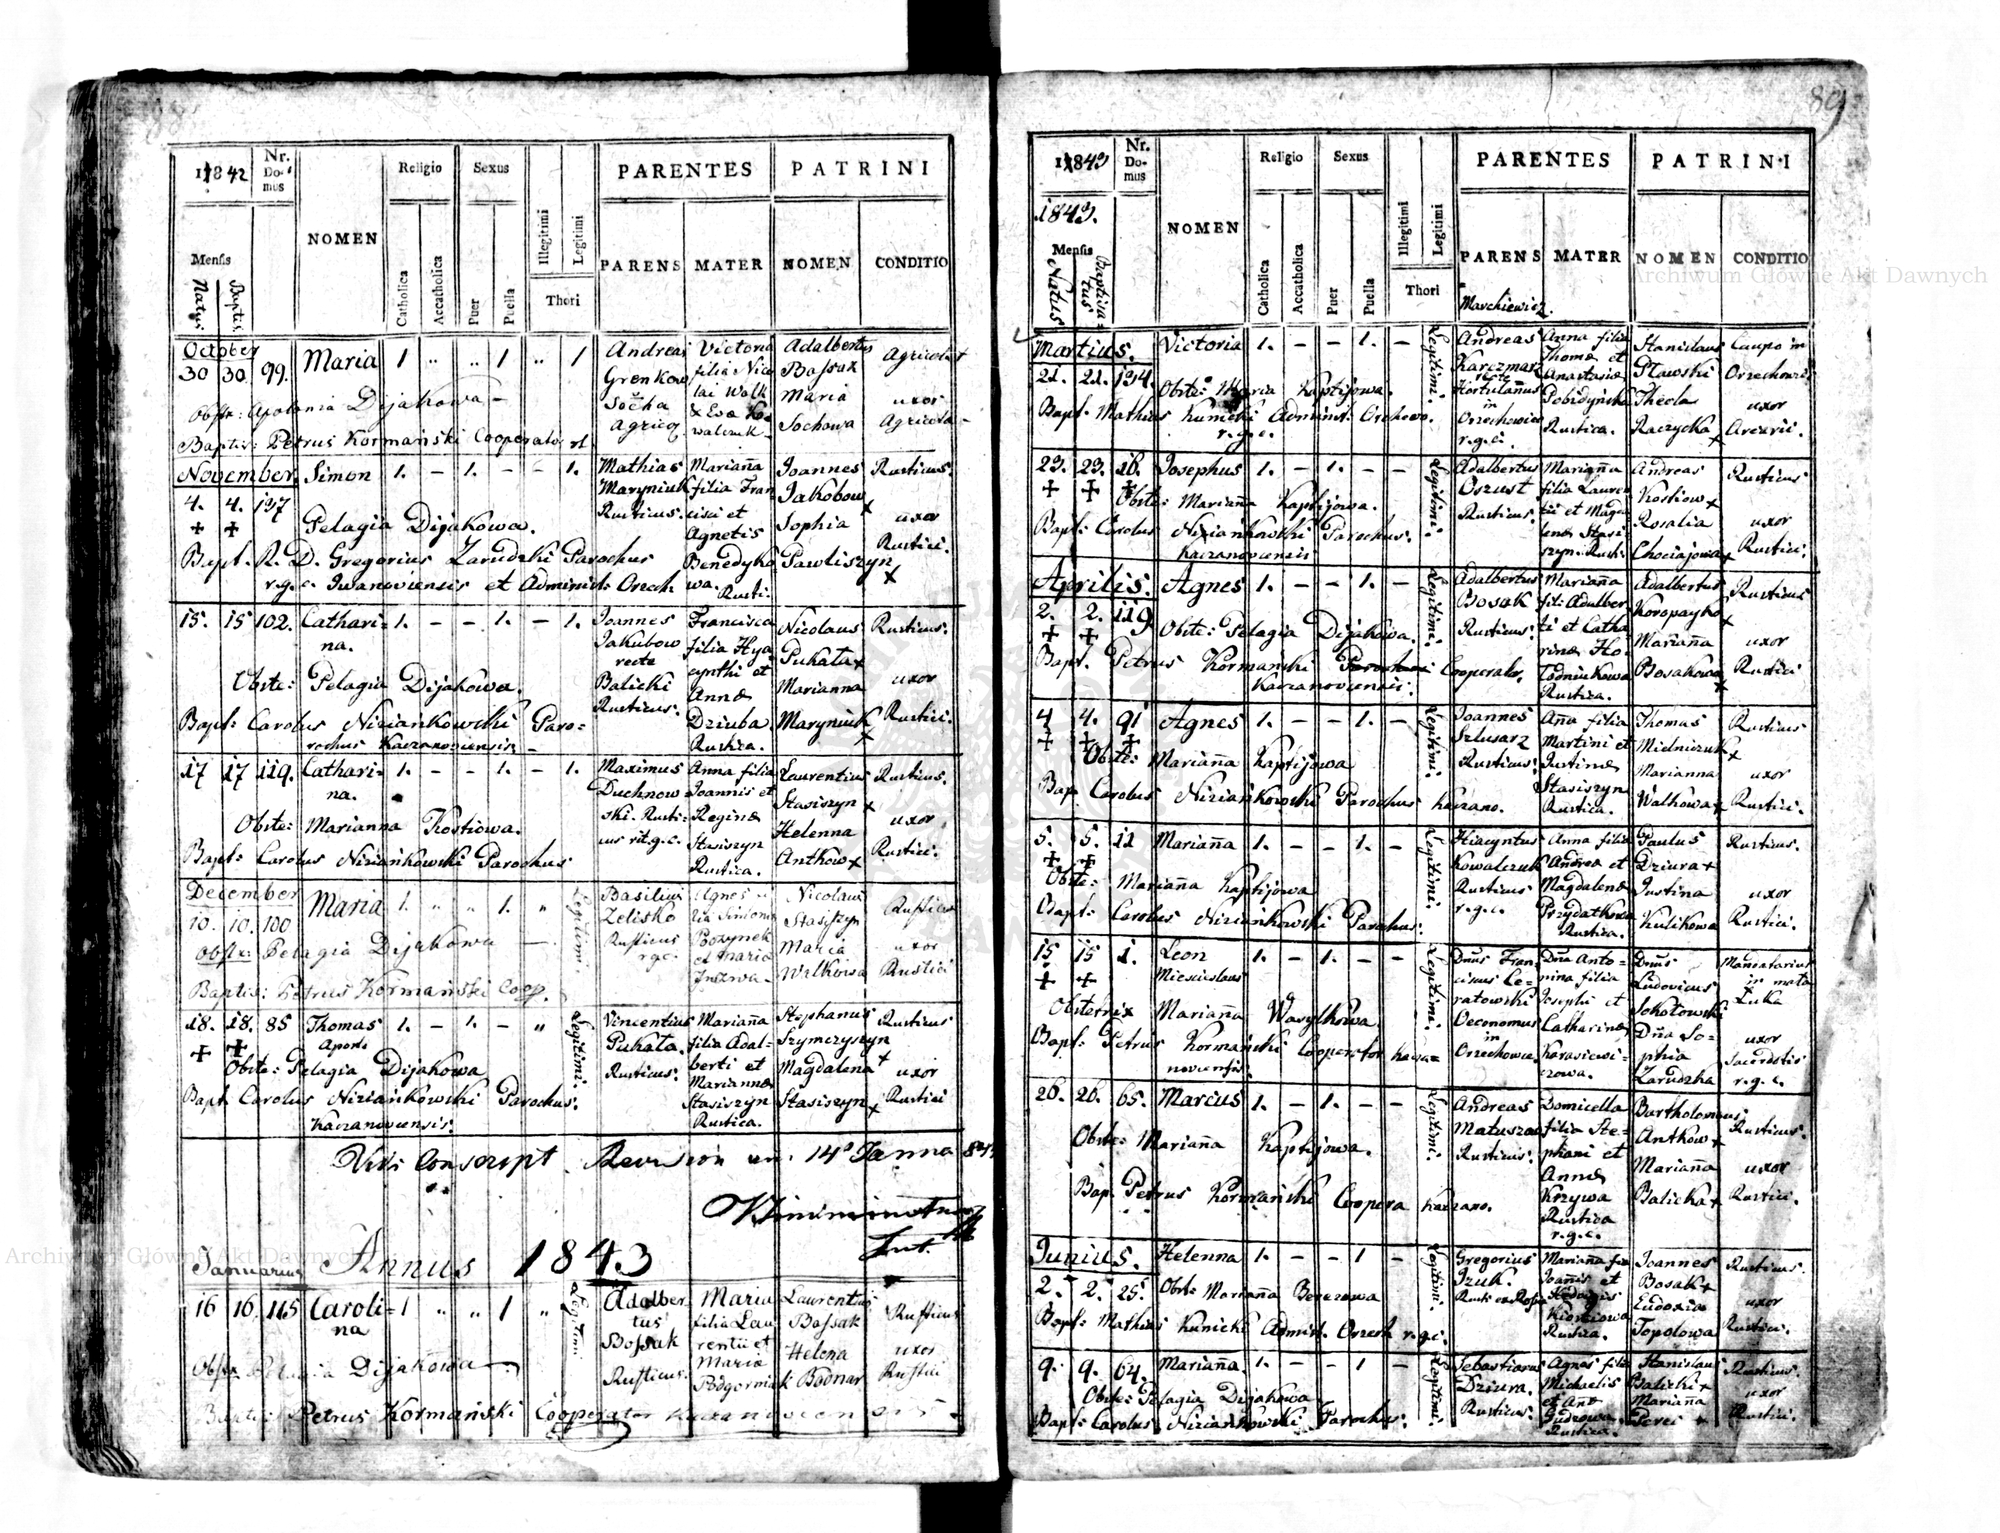 88
1842
Nr. Domus
NOMEN
Religio
Sexus
PARENTES
PATRINI
Mensis
Natus
Baptis
Catholica
Accatholica
Puer
Puella
Illegitimi
Legitimi
Thori
PARENS
MATER
NOMEN
CONDITIO
October
30 30 99. Maria 1 " " 1 " 1
Andreas
Socha
Agricola
Victoria
filia Nico
lai Wolk
Adalbertus
Bassak
Maria
Sochowa
Agricola +
uxor
Agricola
Obstr: Apolonia Dijakowa
Baptis: Petrus Kormański Cooperator
November Simon 1. – 1. – – 1.
4. 4. 137
+ +
Mathias
Maryniuk
Rusticus.
Marianna
filia Fran
cisci et
Agnetis
Benedyko
wa. Rusti.
Joannes
Jakobow +
Sophia
Pawliszyn
+
Rusticus.
uxor
Rustici.
Pelagia Dijakowa.
Bapt. R. D. Gregorius Zarudzki Parochus
r.g.c. Iwanoviensis et Administ: Orech:
15. 15 102. Cathari= 1. – – 1. – 1.
na.
Joannes
Jakubow
recte
Balicki
Rusticus.
Francisca
filia Hya
cynthi et
Annæ
Dziuba
Rustica.
Nicolaus
Pukata +
Marianna
Maryniuk
+
Rusticus.
uxor
Rustici.
Obste: Pelagia Dijakowa.
Bapt: Carolus Niziankowski Paro=
rochus Kaczanoviensis
17 17 119. Cathari= 1. – – 1. – 1.
na.
Maximus
Duchnow=
ski. Rusti=
cus rit.g.c.
Anna filia
Joannis et
Reginæ
Stasiszyn
Rustica.
Laurentius
Stasiszyn +
Helenna
Antkow +
Rusticus.
uxor
Rustici.
Obste: Marianna Kostiowa.
Bapt: Carolus Niziankowski Parochus
December
10. 10. 100 Maria 1. " " 1. " Legitimi
Basilius
Zelisko
Rusticus
rgc.
Agnes
et Maria
Nicolaus
Stasiszyn
Maria
Walkowa
Rusticus
uxor
Rustici
Obstr: Pelagia Dijakowa
Baptis: Petrus Kormański Coop.
18. 18. 85 Thomas 1. – 1. – " Legitimi.
+ + Apost:
Vincentius
Pukata.
Rusticus.
Marianna
filia Adal=
berti et
Mariannæ
Stasiszyn
Rustica.
Stephanus
Szymczyszyn
Magdalena +
Stasiszyn +
Rusticus
uxor
Rustici
Obste: Pelagia Dijakowa
Bapt. Carolus Niziankowski Parochus.
Kaczanoviensis.
Januarius Annus 1843
16 16 115 Caroli= 1 " " 1 " Legitimi
na
Adalber
tus
Bossak
Rusticus.
Maria
filia Lau
rentii et
Maria
Podgorniak
Laurentius
Bossak
Helena
Bodnar
Rusticus
uxor
Rustici
Obstr Pelagia Dijakowa
Baptis: Petrus Kormański Cooperator Kaczanoviensis.
89
1843
Nr. Domus
1843.
Mensis
Natus
Baptisatus
NOMEN
Religio
Sexus
Catholica
Accatholica
Puer
Puella
Illegitimi
Legitimi
Thori
PARENTES
PATRINI
PARENS
MATER
NOMEN
CONDITIO
Marckiewicz.
Martius. Victoria 1. – – 1. – Legitimi.
21. 21. 134.
Andreas
Karczmarz
recte
Hortulannus
in
Orzechowiec
r.g.c.
Anna filia
Thomæ et
Anastasiæ
Rustica.
Stanislaus
Stawski
Thecla
Raczycka +
Caupo in
Orzechowiec
uxor
Obste: Maria Kaptijowa.
Bapt. Mathias Kunicki Administ: Orechow.
r.g.c.
23. 23. 16. Josephus 1. – 1. – – Legitimi.
+ + +
Adalbertus
Oszust
Rusticus.
Marianna
filia Lauren
tii et Magda
lenæ Stasi=
szyn. Rusti.
Andreas
Kostiow +
Rosalia
Chociajowa +
Rusticus
uxor
Rustici.
Obste: Marianna Kaptijowa.
Bapt: Carolus Niziankowski Parochus.
Kaczanoviensis
Aprilis. Agnes 1. – – 1. – Legitimi.
2. 2. 119
+ +
Adalbertus
Bosak
Rusticus.
Marianna
fil: Adalber
ti et Catha=
rinæ Ho=
łodniukowa
Rustica.
Adalbertus
Koropayko +
Marianna
Bosakowa +
Rusticus
uxor
Rustici
Obste: Pelagia Dijakowa.
Bapt. Petrus Kormański Parochus Cooperator.
Kaczanoviensis.
4 4. 91 Agnes 1. – – 1. – Legitimi.
+ + +
Joannes
Szlusarz
Rusticus.
Anna filia
Martini et
Justinæ
Stasiszyn
Rustica.
Thomas
Mielniczuk +
Marianna
Walkowa +
Rusticus
uxor
Rustici.
Obste: Marianna Kaptijowa
Bap. Carolus Niziankowski Parochus Kaczano.
5. 5. 11 Marianna 1. – – 1. – Legitimi.
+ +
Hiacyntus
Kowalczuk
Rusticus
r.g.c.
Anna filia
Andreæ et
Magdalenæ
Przydatkowa
Rustica.
Paulus
Dziura +
Justina
Kulikowa
Rusticus.
uxor
Rustici.
Obste: Marianna Kaptijowa
Bapt: Carolus Niziankowski Parochus.
15 15 1. Leon 1. – 1. – – Legitimi.
+ + Miecuslaus
Dnus Fran=
ciscus Ce=
ratowski
Oeconomus
in
Orzechowiec.
Dna Anto=
nina filia
Josephi et
Catharinæ
Karasiewi=
czowa.
Dnus
Ludovicus
Sokołowski
Dna So=
phia
Zarudzka
Mandatarius
in mata
Luka
uxor
Sacerdotis
r.g.c.
Obstetrix Marianna Wasylkowa.
Bapt: Petrus Kormański Cooperator Kacza=
noviensis.
26. 26. 65. Marcus 1. – 1. – – Legitimi.
Andreas
Matuszac
Rusticus.
Domicella
filia Ste=
phani et
Annæ
Krzywa
Rustica
r.g.c.
Bartholomeus
Antkow +
Marianna
Balicka +
Rusticus.
uxor
Rustici.
Obste: Marianna Kaptijowa.
Bap. Petrus Kormański Coopera Kaczano.
Junius. Helenna 1. – – 1 – Legitimi.
2. 2. 25.
Gregorius
Izuk.
Rusti ex Rosia
Marianna filia
Joannis et
Rustica.
Joannes
Bosak +
Eudoxia
Topolowa
Rusticus.
uxor
Rustici.
Obst: Marianna Berezowa
Bapt: Mathias Kunicki Admist. Orzech r.g.c.
9. 9. 64. Marianna 1. – – 1 – Legitimi.
Sebastianus
Dziura.
Rusticus.
Agnes filia
Michaelis
et Annæ
Rustica.
Stanislaus
Balicki +
Marianna
Rusticus.
uxor
Rustici.
Obste: Pelagia Dijakowa
Bapt: Carolus Niziankowski Parochus.
Archiwum Główne Akt Dawnych
Archiwum Główne Akt Dawnych